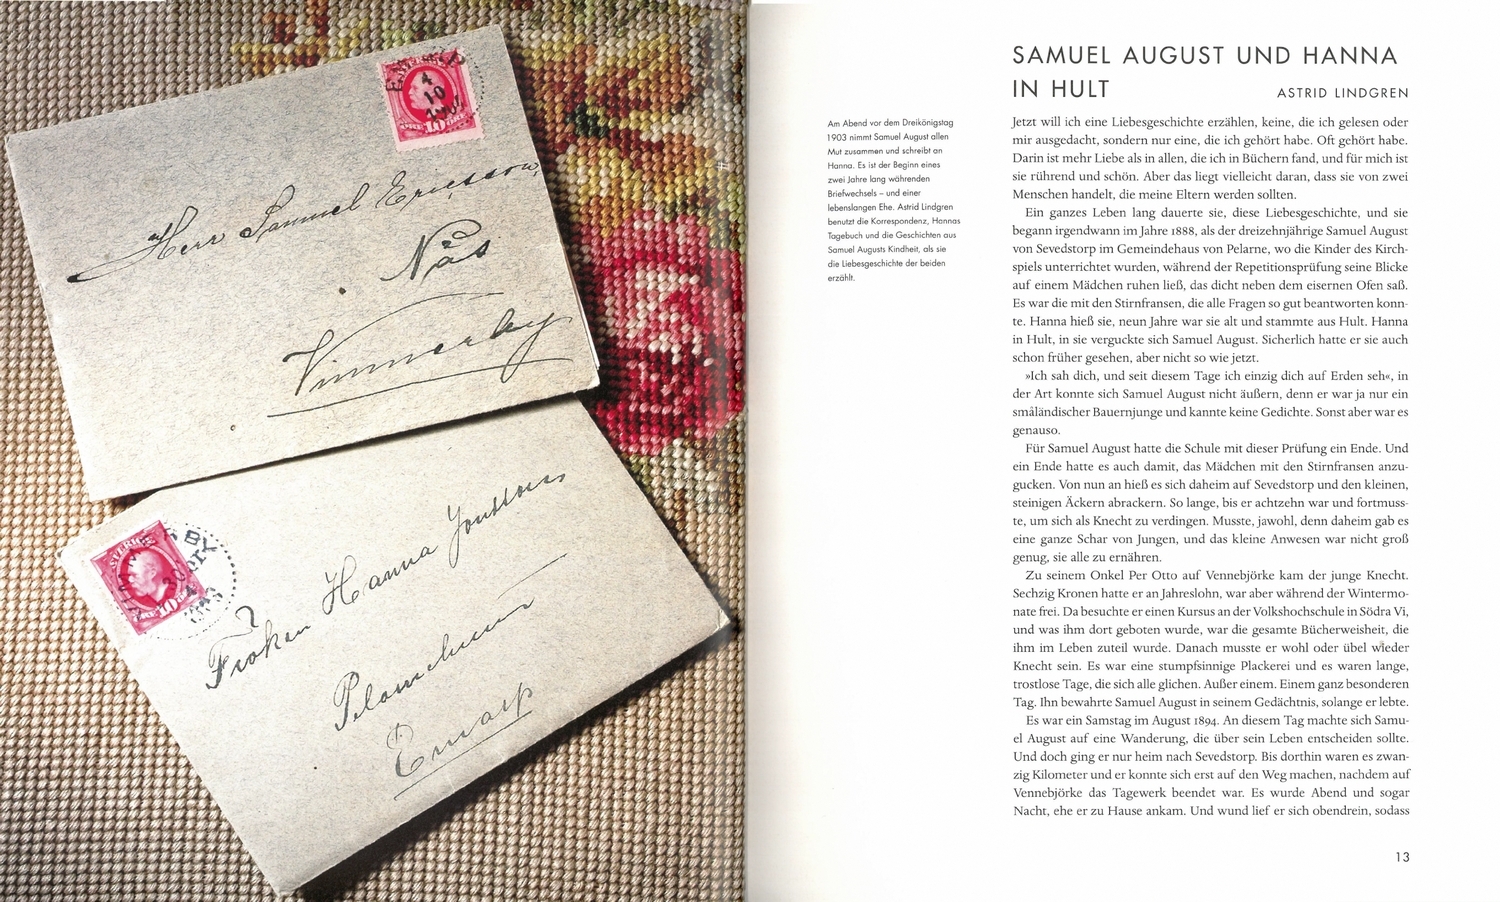 4
10
10 ÖRE
Herr Samuel Ericsson,
Näs
Vimmerby
SVERIGE
BY
30
10
Fröken Hanna Jonsson
Pelarnehult
Emarp
SAMUEL AUGUST UND HANNA
IN HULT
ASTRID LINDGREN
Am Abend vor dem Dreikönigstag
1903 nimmt Samuel August allen
Mut zusammen und schreibt an
Hanna. Es ist der Beginn eines
zwei Jahre lang währenden
Briefwechsels – und einer
lebenslangen Ehe. Astrid Lindgren
benutzt die Korrespondenz, Hannas
Tagebuch und die Geschichten aus
Samuel Augusts Kindheit, als sie
die Liebesgeschichte der beiden
erzählt.
Jetzt will ich eine Liebesgeschichte erzählen, keine, die ich gelesen oder
mir ausgedacht, sondern nur eine, die ich gehört habe. Oft gehört habe.
Darin ist mehr Liebe als in allen, die ich in Büchern fand, und für mich ist
sie rührend und schön. Aber das liegt vielleicht daran, dass sie von zwei
Menschen handelt, die meine Eltern werden sollten.
Ein ganzes Leben lang dauerte sie, diese Liebesgeschichte, und sie
begann irgendwann im Jahre 1888, als der dreizehnjährige Samuel August
von Sevedstorp im Gemeindehaus von Pelarne, wo die Kinder des Kirch-
spiels unterrichtet wurden, während der Repetitionsprüfung seine Blicke
auf einem Mädchen ruhen ließ, das dicht neben dem eisernen Ofen saß.
Es war die mit den Stirnfransen, die alle Fragen so gut beantworten konn-
te. Hanna hieß sie, neun Jahre war sie alt und stammte aus Hult. Hanna
in Hult, in sie verguckte sich Samuel August. Sicherlich hatte er sie auch
schon früher gesehen, aber nicht so wie jetzt.
»Ich sah dich, und seit diesem Tage ich einzig dich auf Erden seh«, in
der Art konnte sich Samuel August nicht äußern, denn er war ja nur ein
småländischer Bauernjunge und kannte keine Gedichte. Sonst aber war es
genauso.
Für Samuel August hatte die Schule mit dieser Prüfung ein Ende. Und
ein Ende hatte es auch damit, das Mädchen mit den Stirnfransen anzu-
gucken. Von nun an hieß es sich daheim auf Sevedstorp und den kleinen,
steinigen Äckern abrackern. So lange, bis er achtzehn war und fortmuss-
te, um sich als Knecht zu verdingen. Musste, jawohl, denn daheim gab es
eine ganze Schar von Jungen, und das kleine Anwesen war nicht groß
genug, sie alle zu ernähren.
Zu seinem Onkel Per Otto auf Vennebjörke kam der junge Knecht.
Sechzig Kronen hatte er an Jahreslohn, war aber während der Wintermo-
nate frei. Da besuchte er einen Kursus an der Volkshochschule in Södra Vi,
und was ihm dort geboten wurde, war die gesamte Bücherweisheit, die
ihm im Leben zuteil wurde. Danach musste er wohl oder übel wieder
Knecht sein. Es war eine stumpfsinnige Plackerei und es waren lange,
trostlose Tage, die sich alle glichen. Außer einem. Einem ganz besonderen
Tag. Ihn bewahrte Samuel August in seinem Gedächtnis, solange er lebte.
Es war ein Samstag im August 1894. An diesem Tag machte sich Samu-
el August auf eine Wanderung, die über sein Leben entscheiden sollte.
Und doch ging er nur heim nach Sevedstorp. Bis dorthin waren es zwan-
zig Kilometer und er konnte sich erst auf den Weg machen, nachdem auf
Vennebjörke das Tagewerk beendet war. Es wurde Abend und sogar
Nacht, ehe er zu Hause ankam. Und wund lief er sich obendrein, sodass
13